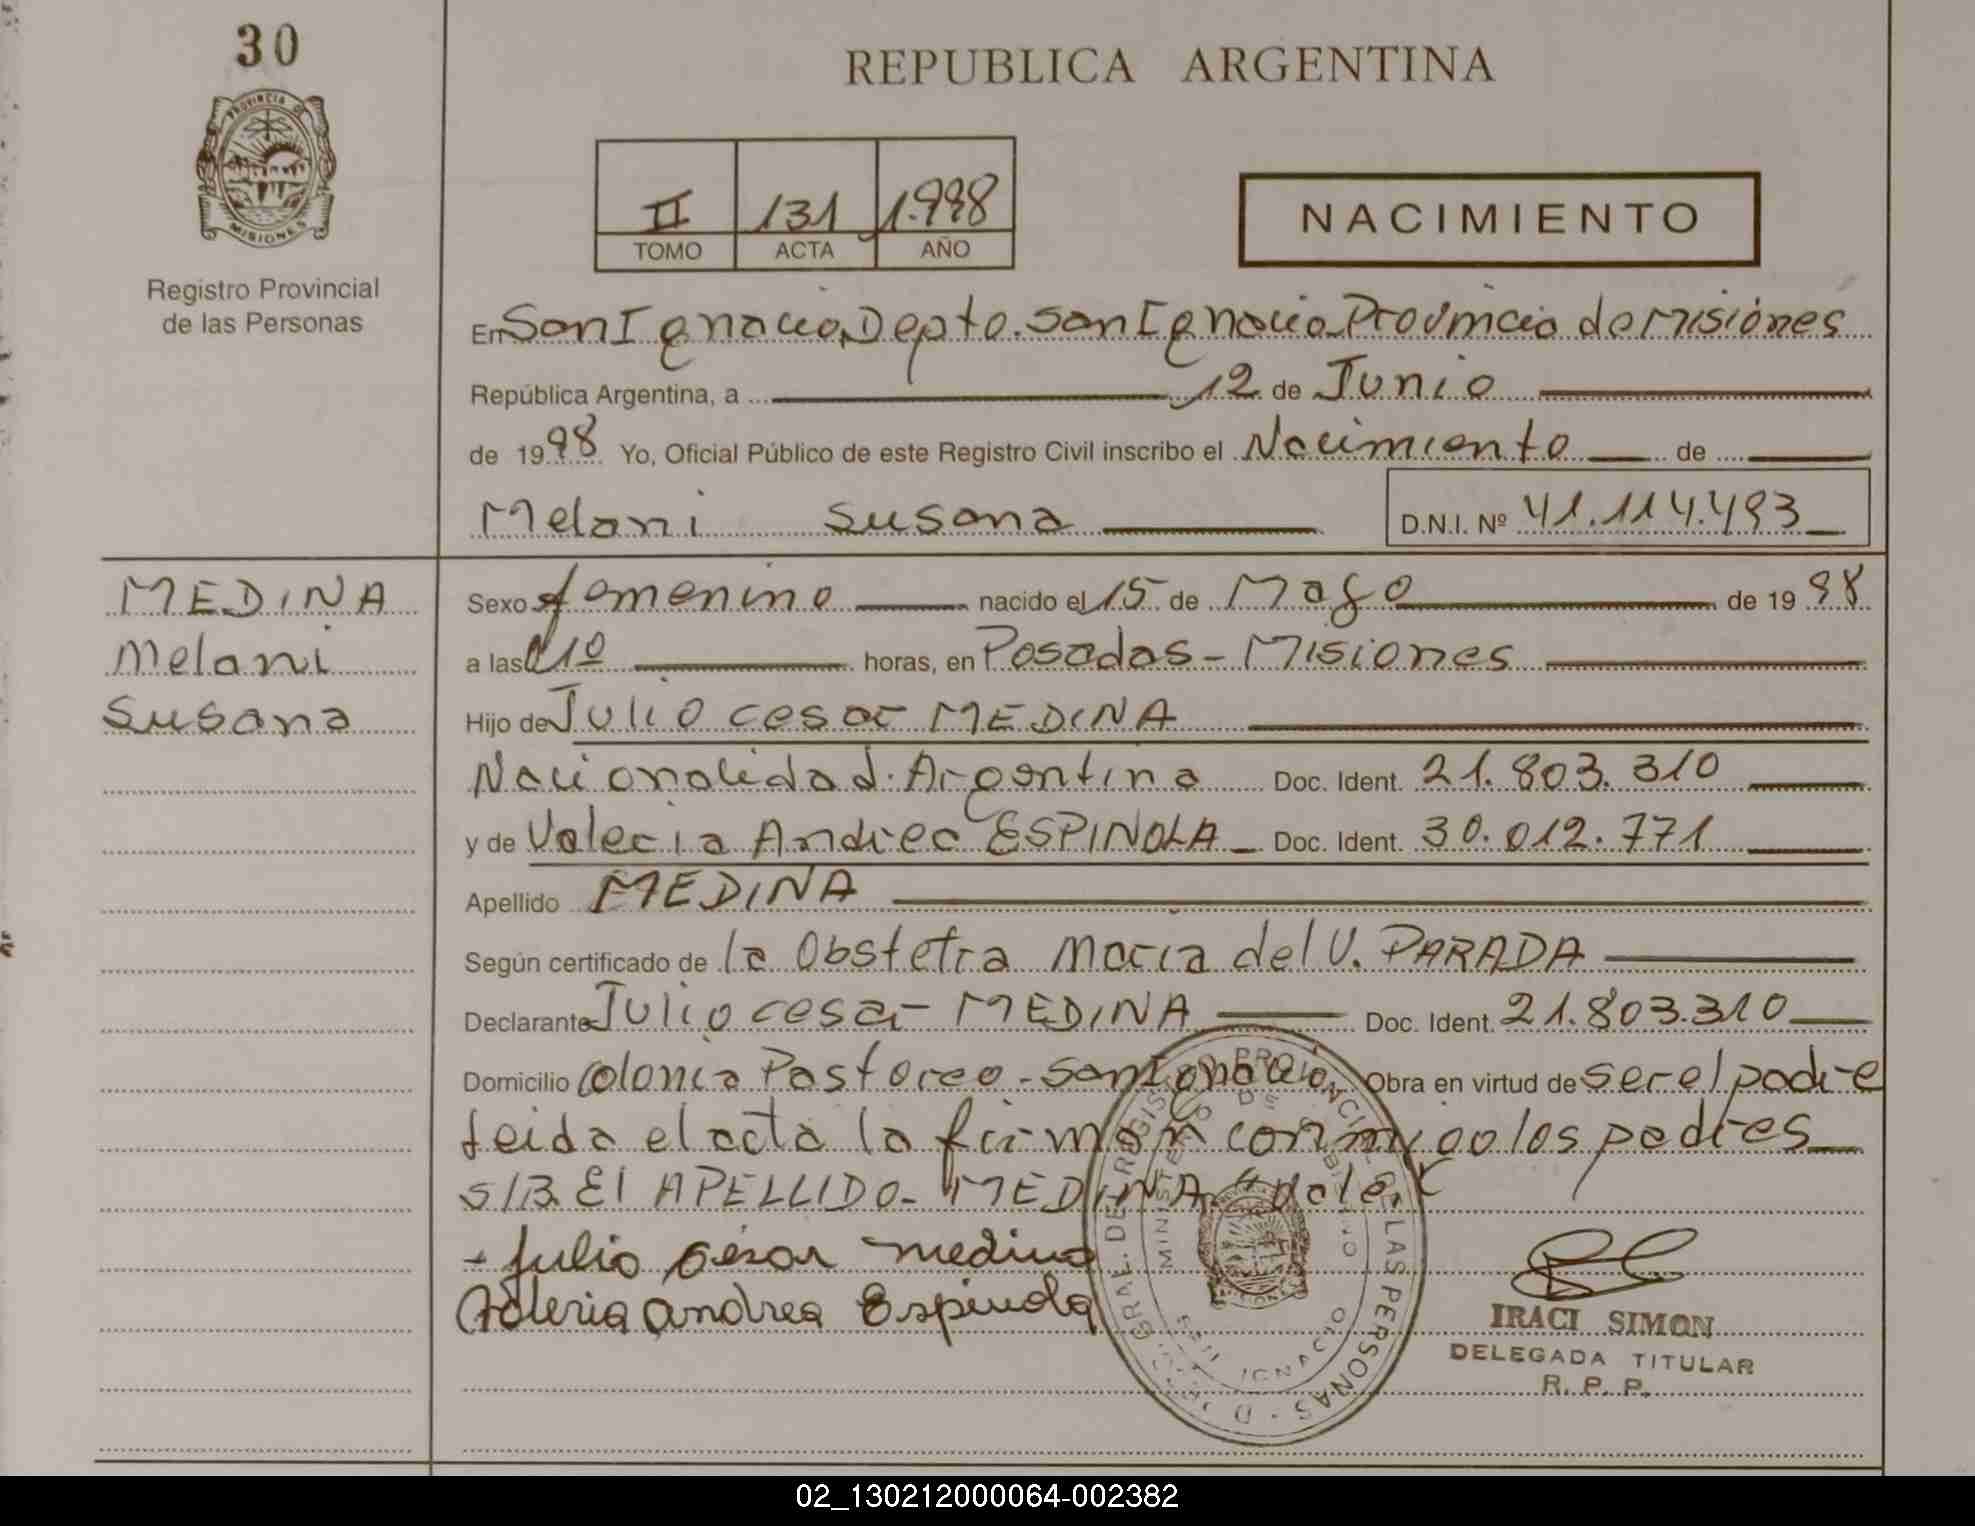 30
PROVINCIA DE
MISIONES
Registro Provincial
de las Personas
REPUBLICA ARGENTINA
II 131 1.998
TOMO ACTA AÑO
NACIMIENTO
En San Ignacio, Depto. San Ignacio Provincia de Misiones
República Argentina, a 12 de Junio
de 1998 Yo, Oficial Público de este Registro Civil inscribo el Nacimiento de
Melani Susana D.N.I. Nº 41.114.493
MEDINA
Melani
Susana
Sexo femenino nacido el 15 de Mayo de 1998
a las 010 horas, en Posadas - Misiones
Hijo de Julio cesar MEDINA
Nacionalidad. Argentina Doc. Ident. 21.803.310
y de Valeria Andrea ESPINOLA Doc. Ident. 30.012.771
Apellido MEDINA
Según certificado de la Obstetra Maria del V. PARADA
Declarante Julio cesar MEDINA Doc. Ident. 21.803.310
Domicilio Colonia Pastoreo - San Ignacio, Obra en virtud de ser el padre
leida el acta la firman conmigo los padres
S/B. El APELLIDO - MEDINA "Vale.
- Julio cesar medina
Valeria andrea Espinola
D - GRAL. DE REGISTRO PROVINCIAL DE LAS PERSONAS
MINISTERIO DE GOBIERNO
SAN IGNACIO
MISIONES
IRACI SIMON
DELEGADA TITULAR
R. P. P.
02_130212000064-002382